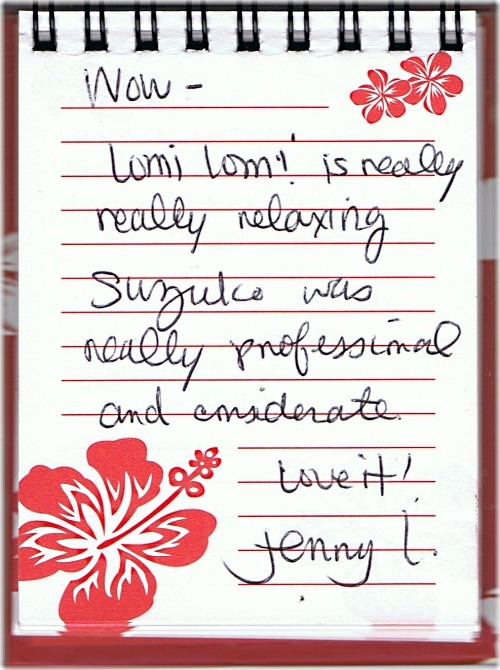 Wow -
Lomi Lomi! is really
really relaxing
Suzuko was
really professional
and considerate.
Love it!
Jenny L.